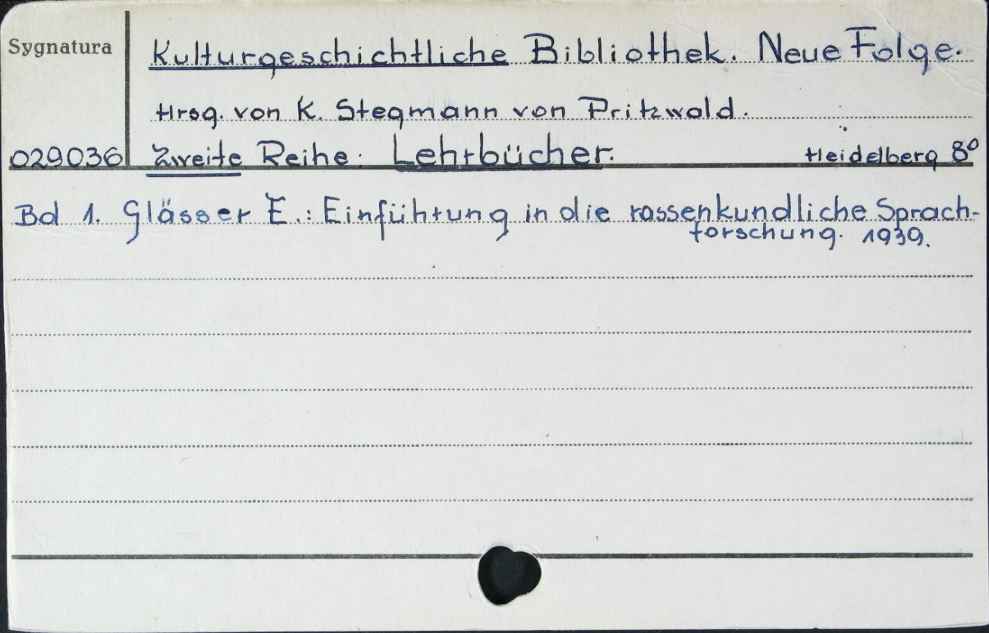 Sygnatura
Kulturgeschichtliche Bibliothek. Neue Folge.
Hrsg. von K. Stegmann von Pritzwald.
029036 Zweite Reihe: Lehrbücher. Heidelberg 8°
Bd 1. Glässer E.: Einführung in die rassenkundliche Sprach-
forschung. 1939.